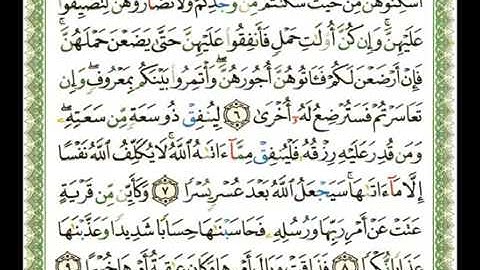 أَسْكِنُوهُنَّ مِنْ حَيْثُ سَكَنتُم مِّن وُجْدِكُمْ وَلَا تُضَآرُّوهُنَّ لِتُضَيِّقُوا۟
عَلَيْهِنَّ ۚ وَإِن كُنَّ أُو۟لَٰتِ حَمْلٍ فَأَنفِقُوا۟ عَلَيْهِنَّ حَتَّىٰ يَضَعْنَ حَمْلَهُنَّ ۚ
فَإِنْ أَرْضَعْنَ لَكُمْ فَـَٔاتُوهُنَّ أُجُورَهُنَّ ۖ وَأْتَمِرُوا۟ بَيْنَكُم بِمَعْرُوفٍ ۖ وَإِن
تَعَاسَرْتُمْ فَسَتُرْضِعُ لَهُۥٓ أُخْرَىٰ ٦ لِيُنفِقْ ذُو سَعَةٍ مِّن سَعَتِهِۦ ۖ
وَمَن قُدِرَ عَلَيْهِ رِزْقُهُۥ فَلْيُنفِقْ مِمَّآ ءَاتَىٰهُ ٱللَّهُ ۚ لَا يُكَلِّفُ ٱللَّهُ نَفْسًا
إِلَّا مَآ ءَاتَىٰهَا ۚ سَيَجْعَلُ ٱللَّهُ بَعْدَ عُسْرٍ يُسْرًا ٧ وَكَأَيِّن مِّن قَرْيَةٍ
عَتَتْ عَنْ أَمْرِ رَبِّهَا وَرُسُلِهِۦ فَحَاسَبْنَٰهَا حِسَابًا شَدِيدًا وَعَذَّبْنَٰهَا
عَذَابًا نُّكْرًا ٨ فَذَاقَتْ وَبَالَ أَمْرِهَا وَكَانَ عَٰقِبَةُ أَمْرِهَا خُسْرًا ٩